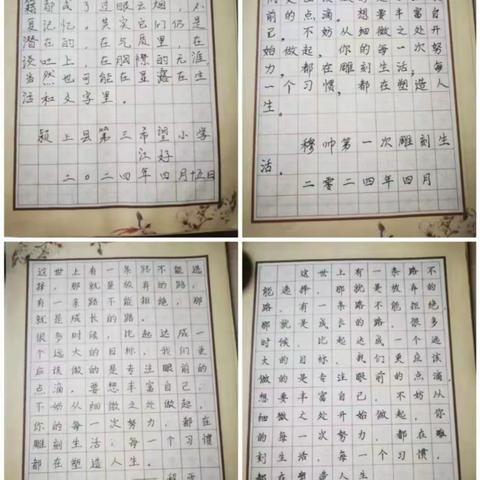 籍都成了过眼云烟，不
复记忆。其实它们仍是
潜在的，在气质里，在
谈吐上，在胸襟的无涯
当然也可能在显露在生
活和文字里。
颍上县第三希望小学
江好
二〇二四年四月十五日
前的点滴。想要丰富自
己，不妨从细微之处开
始做起，你的每一次努
力，都在雕刻生活，每
一个习惯，都在塑造人
生。
穆帅第一次雕刻生
活。
二零二四年四月
这世上有一条路不能选
择，那就是放弃的路，
有一条路不能拒绝，那
就是成长的路。
很多时候，比起达成一
个远大的目标，我们更
应该做的是专注眼前的
点滴。要想丰富自己，
不妨从细微之处做起，
你的每一次努力，都在
雕刻生活；每一个习惯
都在塑造人生。
这世上有一条路不
能选择，那就是放弃的
路，有一条路不能拒绝，
那就是成长的路。很多
时候，比起达成一个远
大的目标，我们更应该
做的是专注眼前的点滴，
想要丰富自己，不妨从
细微之处开始做起，你
的每一次努力，都在雕
刻生活，每一个习惯，
都在塑造人生